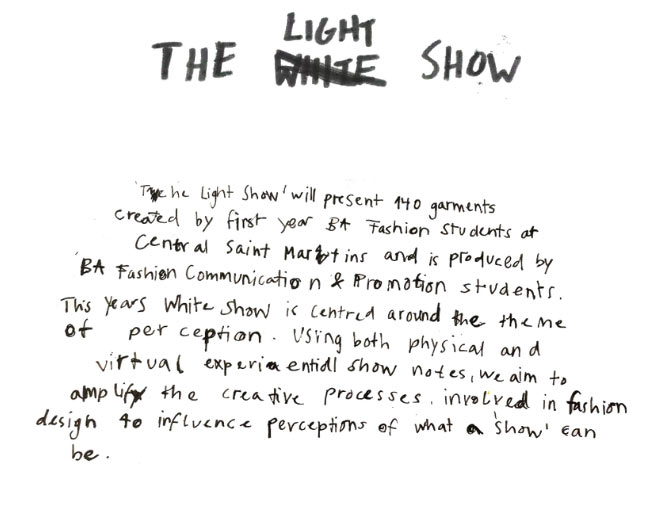 LIGHT
THE WHITE SHOW
'The Light Show' will present 140 garments
created by first year BA Fashion students at
Central Saint Martins and is produced by
BA Fashion Communication & Promotion students.
This years White Show is centred around the theme
of perception. Using both physical and
virtual experiential show notes, we aim to
amplify the creative processes involved in fashion
design to influence perceptions of what a 'show' can
be.